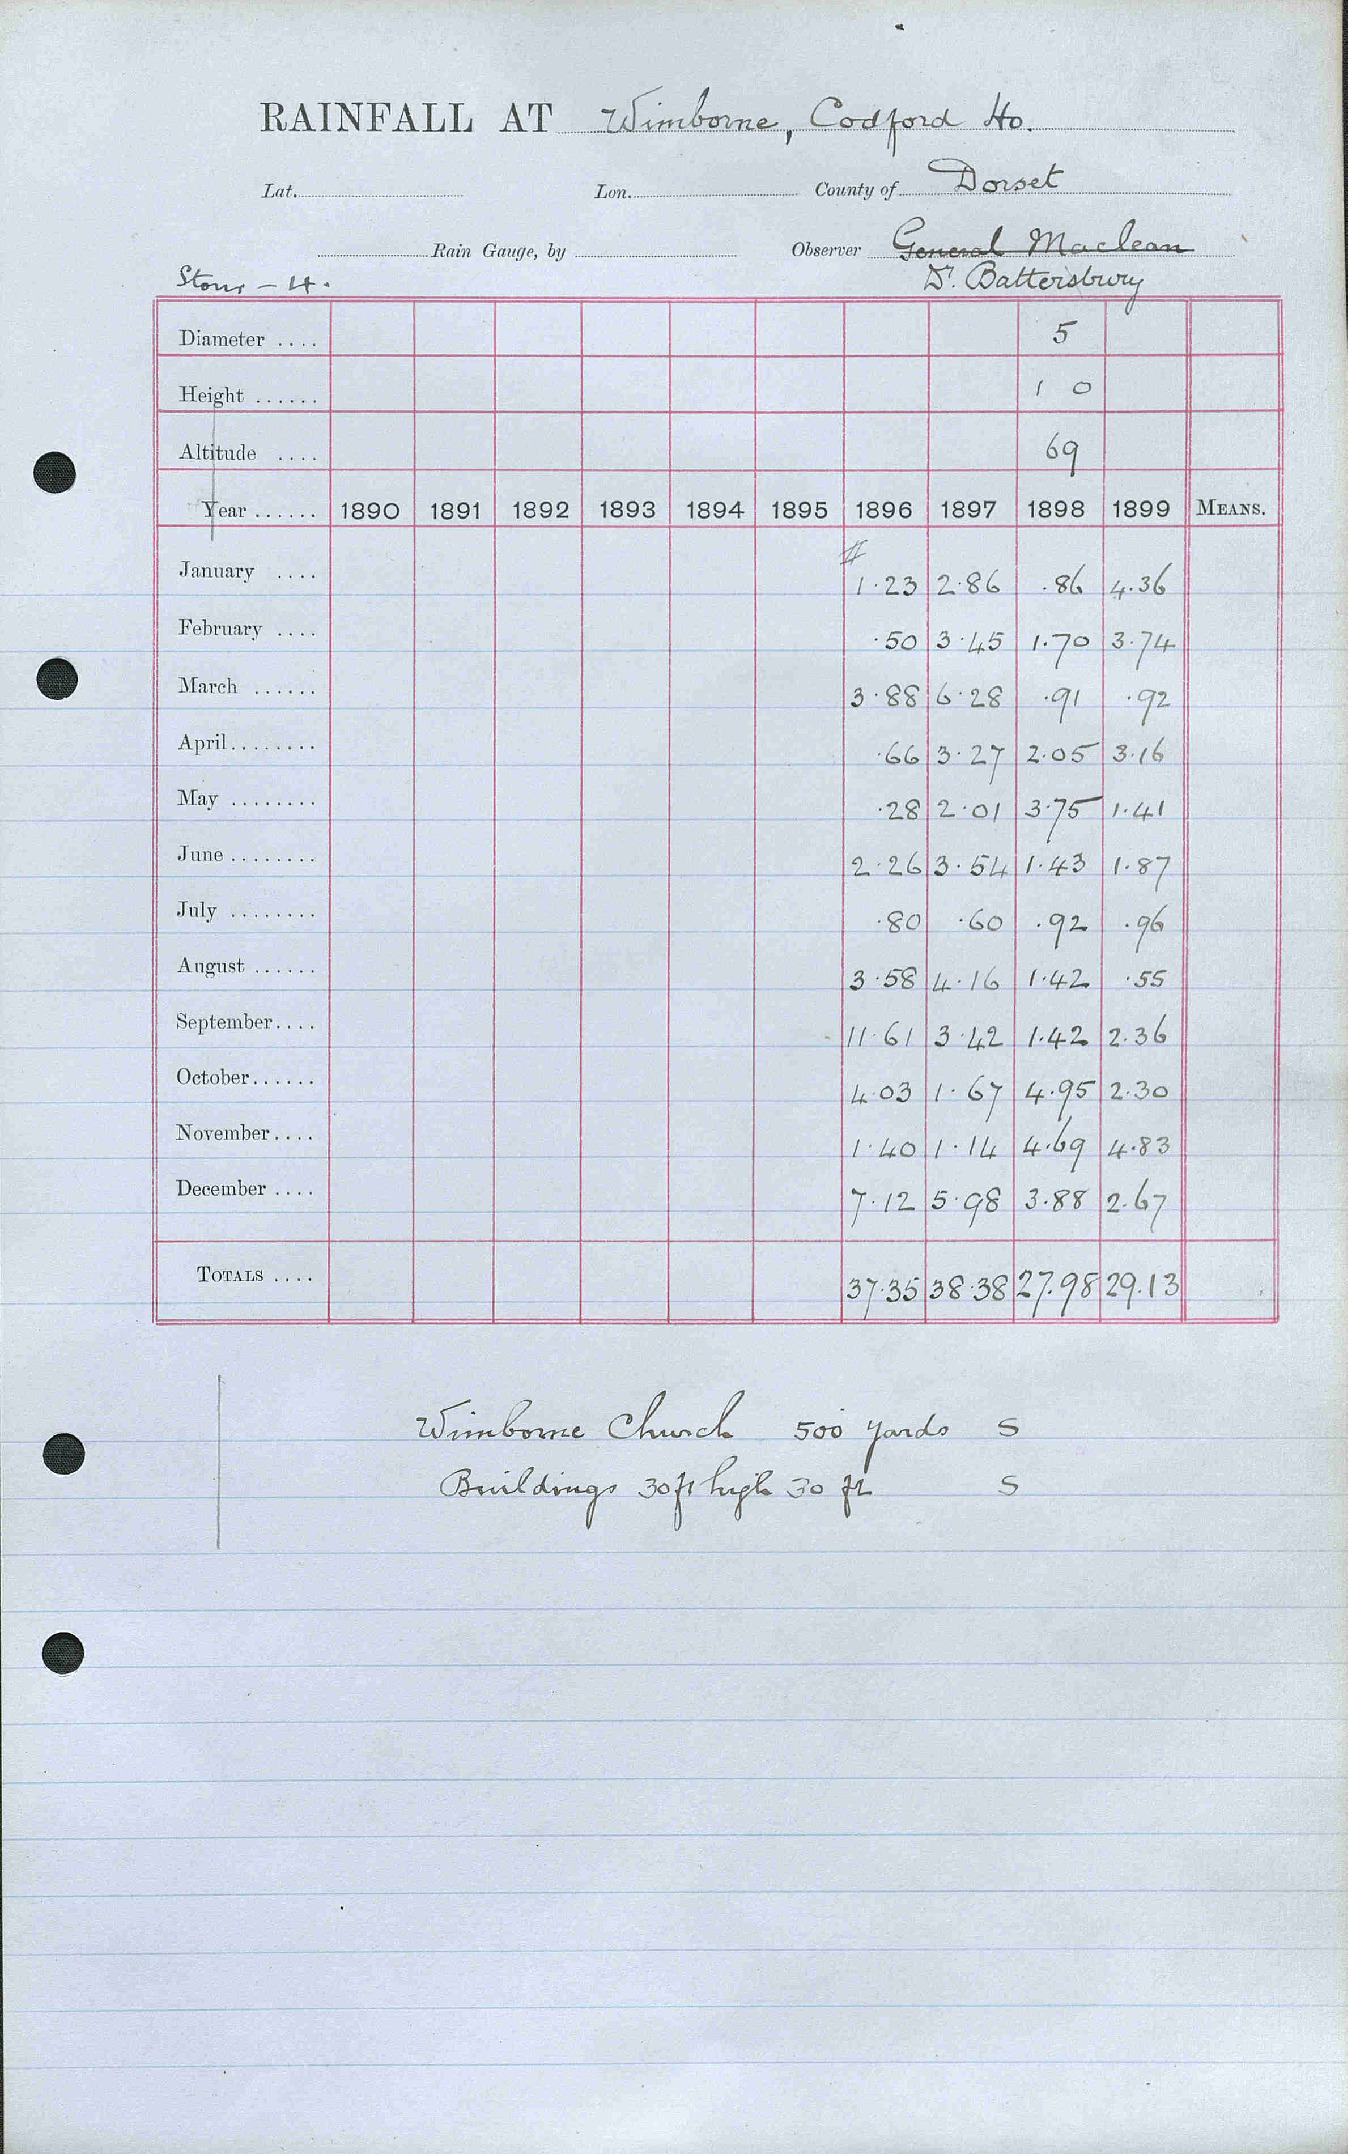 RAINFALL AT Wimborne, Codford Ho.
Lat. Lon. County of Dorset
Rain Gauge, by Observer General Maclean
Stour - 14. Dr. Battersbury
Diameter .... 5
Height ...... 1 0
Altitude .... 69
Year ...... 1890 1891 1892 1893 1894 1895 1896 1897 1898 1899 MEANS.
January .... 1.23 2.86 .86 4.36
February .... .50 3.45 1.70 3.74
March ...... 3.88 6.28 .91 .92
April ........ .66 3.27 2.05 3.16
May ........ .28 2.01 3.75 1.41
June ........ 2.26 3.54 1.43 1.87
July ........ .80 .60 .92 .96
August ...... 3.58 4.16 1.42 .55
September .... 11.61 3.42 1.42 2.36
October ...... 4.03 1.67 4.95 2.30
November .... 1.40 1.14 4.69 4.83
December .... 7.12 5.98 3.88 2.67
TOTALS .... 37.35 38.38 27.98 29.13
Wimborne Church 500 yards S
Buildings 30 ft high 30 ft S